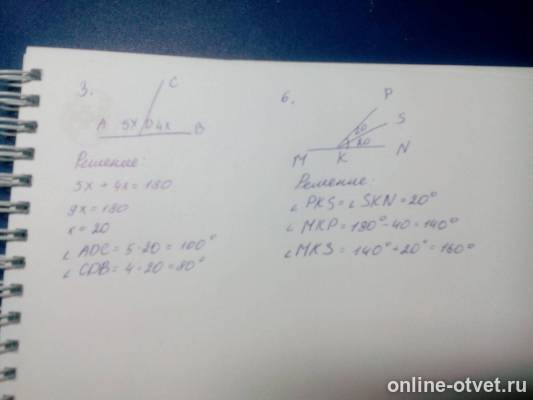 3.
C
A 5x D 4x B
Решение:
5x + 4x = 180
9x = 180
x = 20
∠ADC = 5·20 = 100°
∠CDB = 4·20 = 80°
6.
P
S
20
20
M K N
Решение:
∠PKS = ∠SKN = 20°
∠MKP = 180° - 40 = 140°
∠MKS = 140° + 20° = 160°
online-otvet.ru